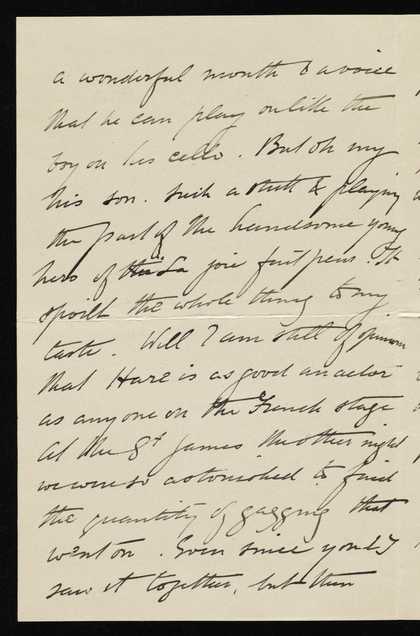 a wonderful mouth & a voice
that he can play on like the
boy on his cello. But oh my
his son. Such a stick & playing
the part of the handsome young
hero of the La joie fait peur. It
spoilt the whole thing to my
taste. Well I am still of opinion
that Hare is as good an actor
as anyone on the French stage
At the St James the other night
we were so astonished to find
the quantity of gagging that
went on. Even since you & I
saw it together, but then